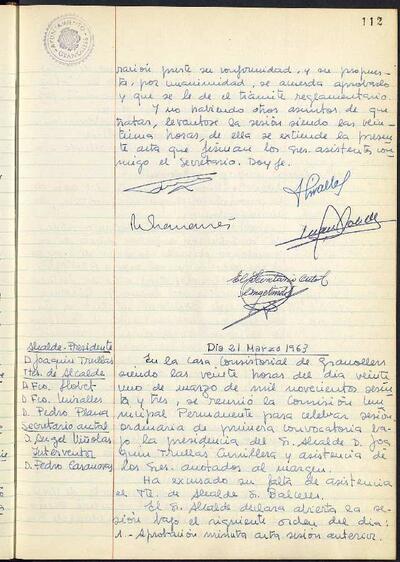 112
AYUNTAMIENTO
GRANOLLERS
ración preste su conformidad, y su propues-
ta, por unanimidad, se acuerda aprobarlo
y que se le dé el trámite reglamentario.
Y no habiendo otros asuntos de que
tratar, levantose la sesión siendo las vein-
tiuna horas, de ella se extiende la presen-
te acta que firman los Sres. asistentes con-
migo el Secretario. Doy fe.
El Secretario Acctal
Dia 21 Marzo 1963
Alcalde-Presidente
D. Joaquin Trullas
Ttes. de Alcalde
D. Fco. Llobet
D. Fco. Miralles
D. Pedro Plana
Secretario acctal
D. Angel Viñolas
Interventor
D. Pedro Casanovas
En la Casa Consistorial de Granollers
siendo las veinte horas del día veinte
uno de marzo de mil novecientos sesen-
ta y tres, se reunió la Comisión Mu-
nicipal Permanente para celebrar sesión
ordinaria de primera convocatoria ba-
jo la presidencia del Sr. Alcalde D. Joa-
quin Trullas Cunillera y asistencia de
los Sres. anotados al margen.
Ha excusado su falta de asistencia
el Tte. de Alcalde Sr. Balcells.
El Sr. Alcalde declara abierta la se-
sión bajo el siguiente orden del dia:
1.- Aprobación minuta acta sesión anterior.